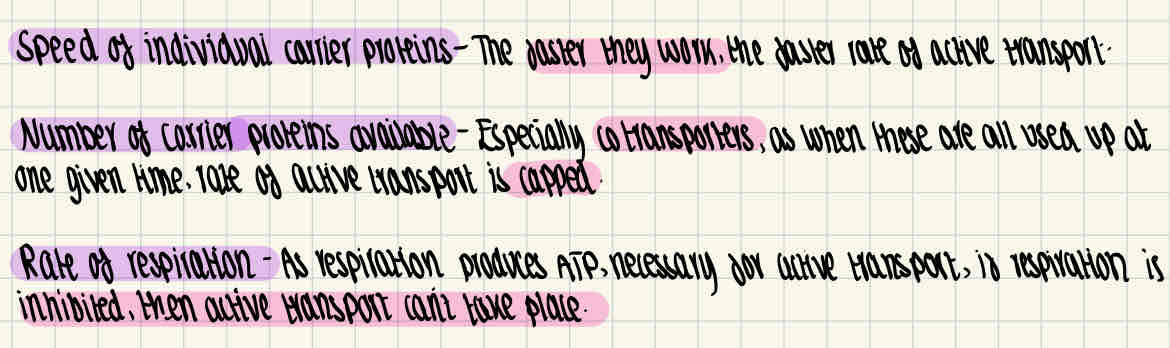 Speed of individual carrier proteins - The faster they work, the faster rate of active transport.
Number of carrier proteins available - Especially cotransporters, as when these are all used up at
one given time, rate of active transport is capped.
Rate of respiration - As respiration produces ATP, necessary for active transport, if respiration is
inhibited, then active transport can't take place.